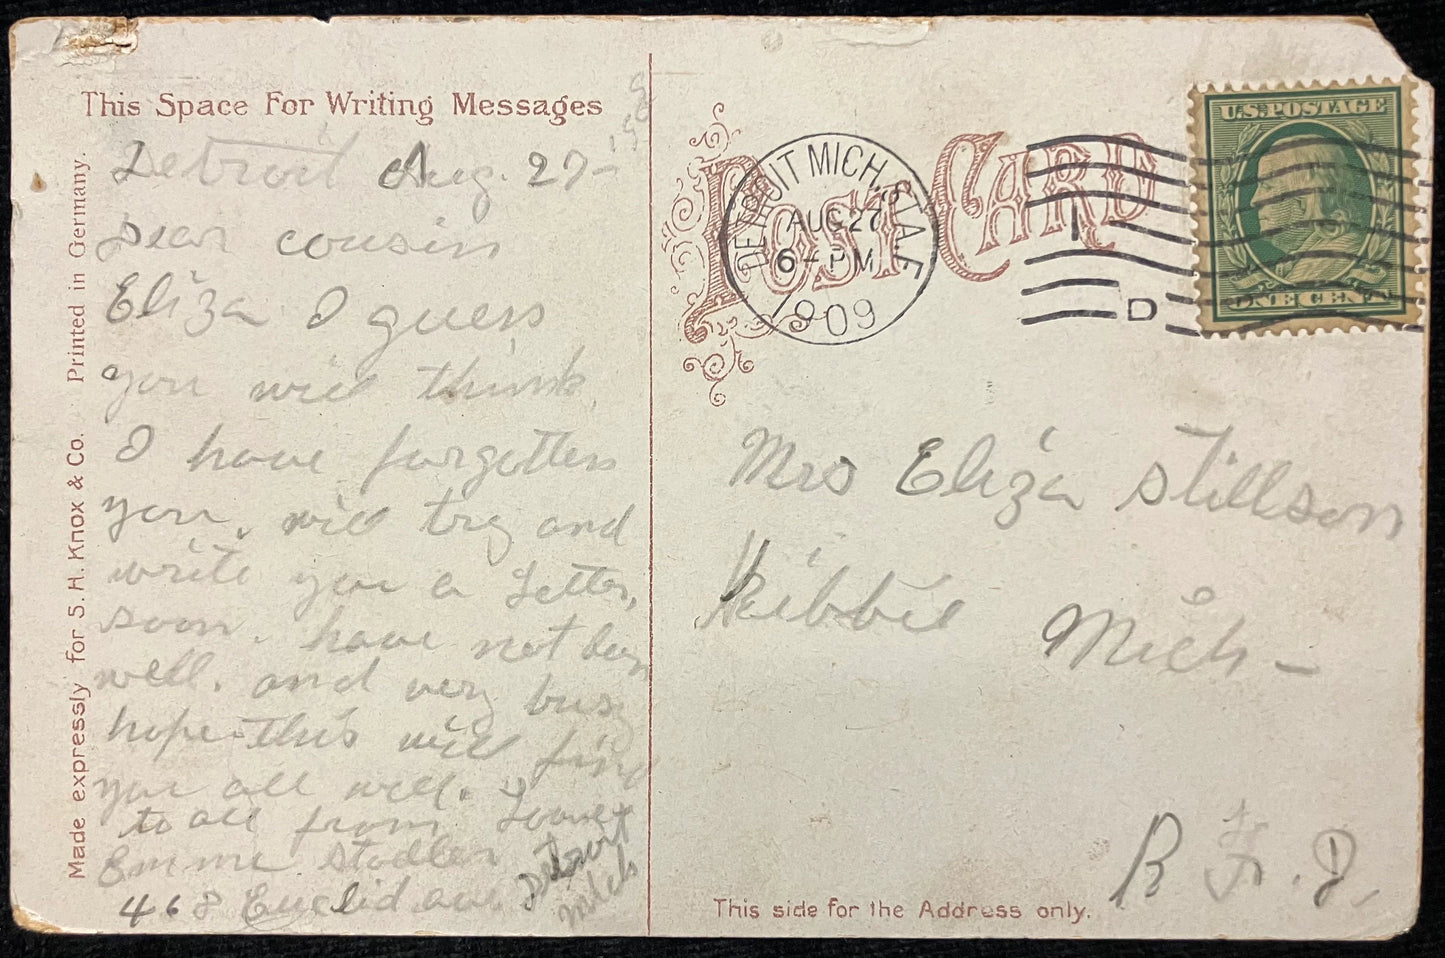 This Space For Writing Messages
Detroit Aug. 27-
Dear cousin
Eliza I guess
you will think
I have forgotten
you. will try and
write you a Letter,
soon. have not been
well. and very busy
hope this will find
you all well. Love
to all from
Emma Stadler
468 Euclid ave Detroit
Mich
Made expressly for S. H. Knox & Co. Printed in Germany.
POST CARD
DETROIT MICH. STA. F
AUG 27
6-PM
1909
1
D
U.S. POSTAGE
ONE CENT
Mrs Eliza Stillson
Kibbie
Mich-
R. F. D.
This side for the Address only.